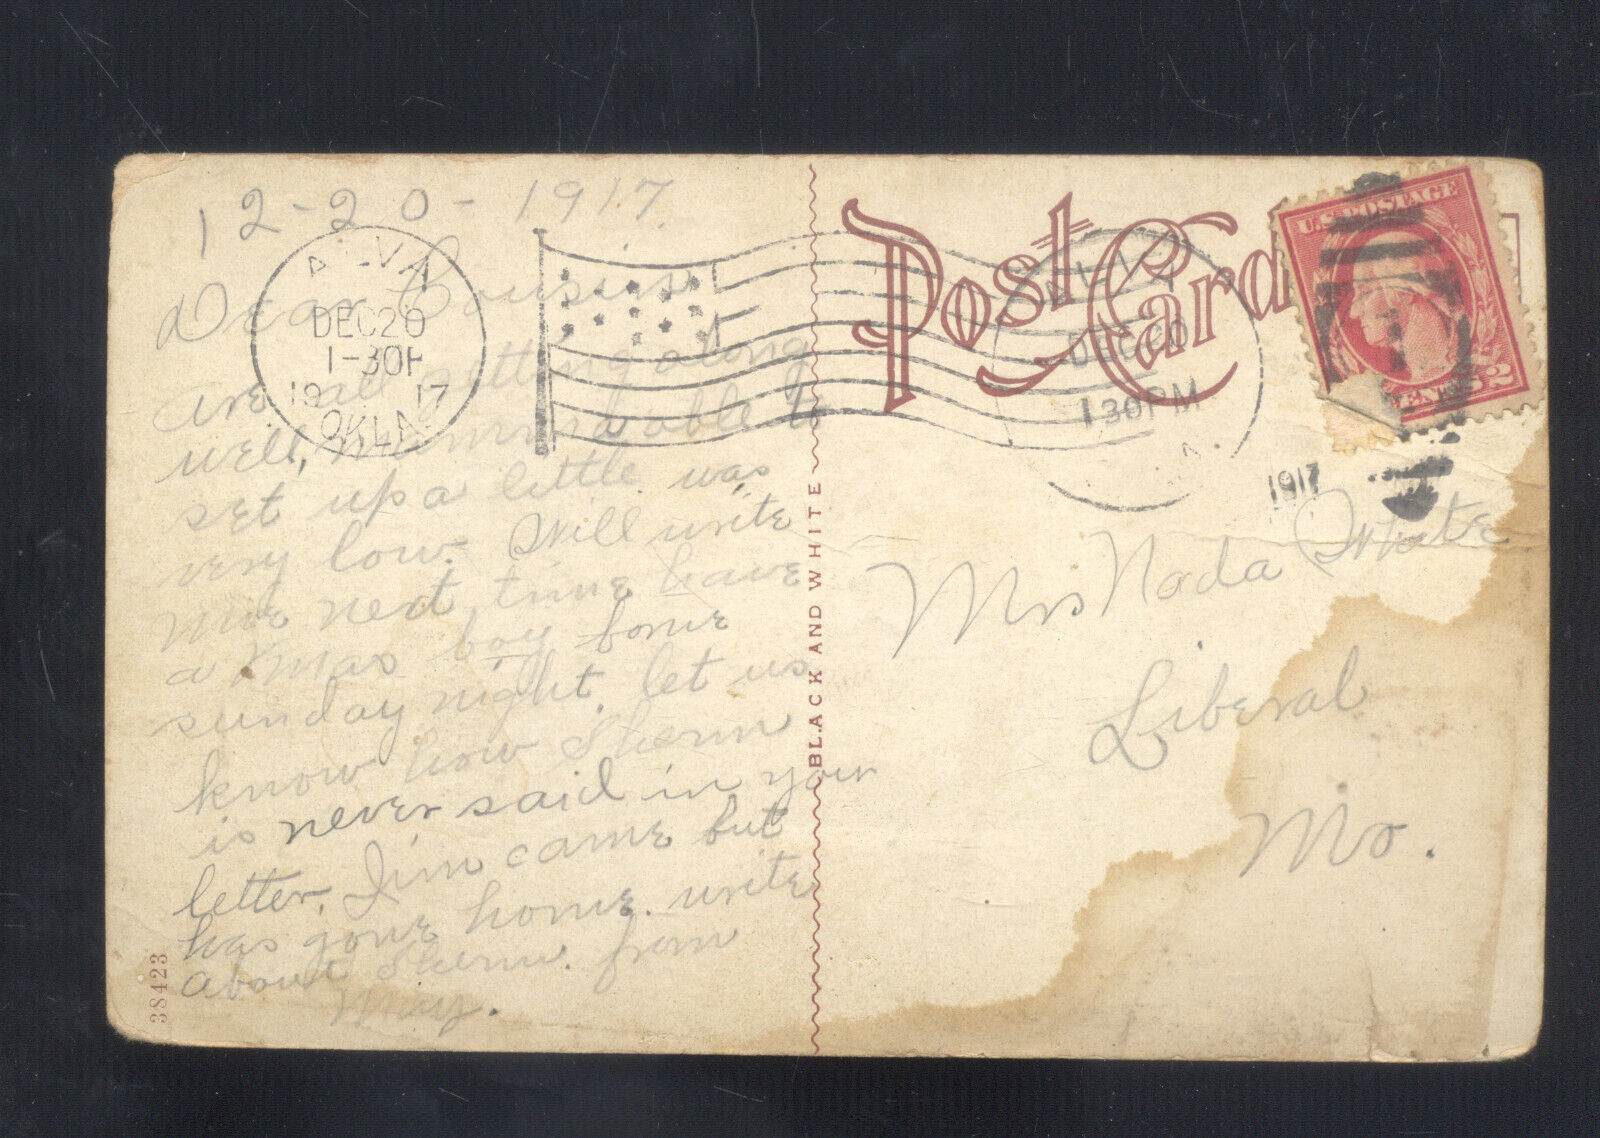 12-20-1917
Dear Cousin
are all getting along
well, mamma able to
set up a little. was
very low. Will write
more next time have
a Xmas boy borne
sunday night. let us
know how Sherm
is never said in your
letter. Jim came but
has gone home. write
about Sherm. from
May.
38423
ALVA
DEC 20
1-30P
1917
OKLA.
BLACK AND WHITE
Post Card
ALVA
DEC 20
1 30PM
1917
U.S. POSTAGE
CENTS 2
Mrs Nada White
Liberal
Mo.